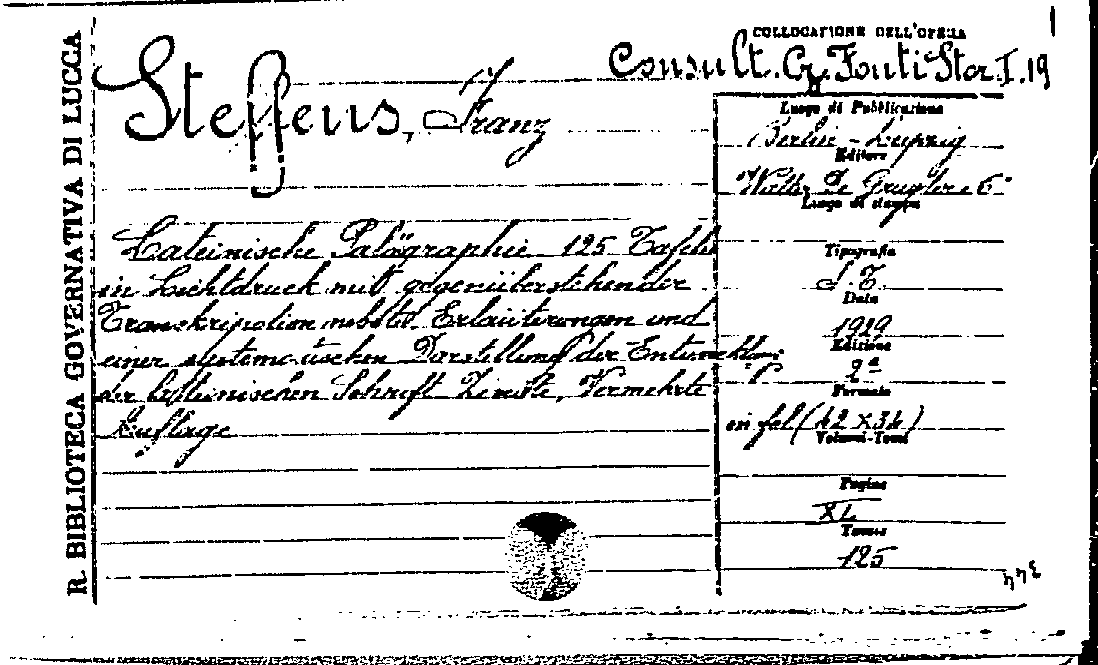 R. BIBLIOTECA GOVERNATIVA DI LUCCA
1
COLLOCAZIONE DELL'OPERA
Consult. G. Fonti Stor. I. 19
Steffens, Franz
Luogo di Pubblicazione
Berlin - Leipzig
Editore
Walter De Gruyter e C°
Luogo di stampa
Lateinische Paläographie 125 Tafeln
in Lichtdruck mit gegenüberstehender
Transkription nebst Erläuterungen und
einer systematischen Darstellung der Entwicklung
der lateinischen Schrift Zweite, Vermehrte
Auflage
Tipografia
S. T.
Data
1929
Edizione
2ª
Formato
in fol (42 X 34)
Volumi-Tomi
Pagine
XL
Tavole
125
344